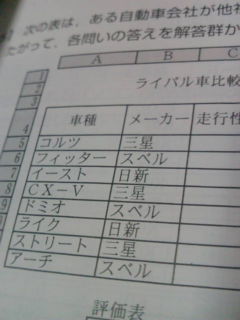 次の表は，ある自動車会社が他社
たがって，各問いの答えを解答群か
A B C
1
2 ライバル車比較
3
4 車種 メーカー 走行性
5 コルツ 三星
6 フィッター スベル
7 イースト 日新
8 CX－V 三星
9 ドミオ スベル
ライク 日新
ストリート 三星
アーチ スベル
評価表